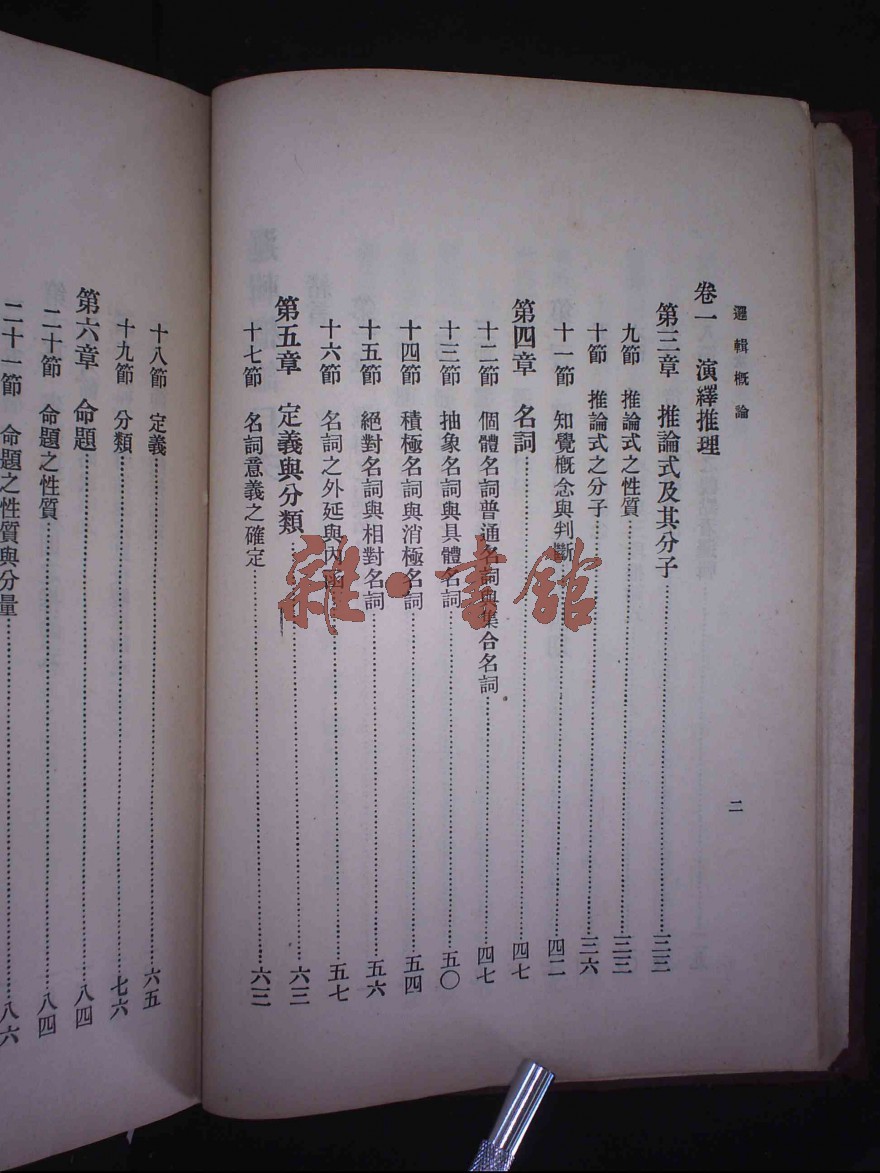 邏輯概論
二
卷一　演繹推理
第三章　推論式及其分子……三三
九節　推論式之性質……三三
十節　推論式之分子……三六
十一節　知覺概念與判斷……四二
第四章　名詞……四七
十二節　個體名詞普通名詞與集合名詞……四七
十三節　抽象名詞與具體名詞……五〇
十四節　積極名詞與消極名詞……五四
十五節　絕對名詞與相對名詞……五六
十六節　名詞之外延與內函……五七
第五章　定義與分類……六三
十七節　名詞意義之確定……六三
十八節　定義……六五
十九節　分類……七六
第六章　命題……八四
二十節　命題之性質……八四
二十一節　命題之性質與分量……八六
雜·書館